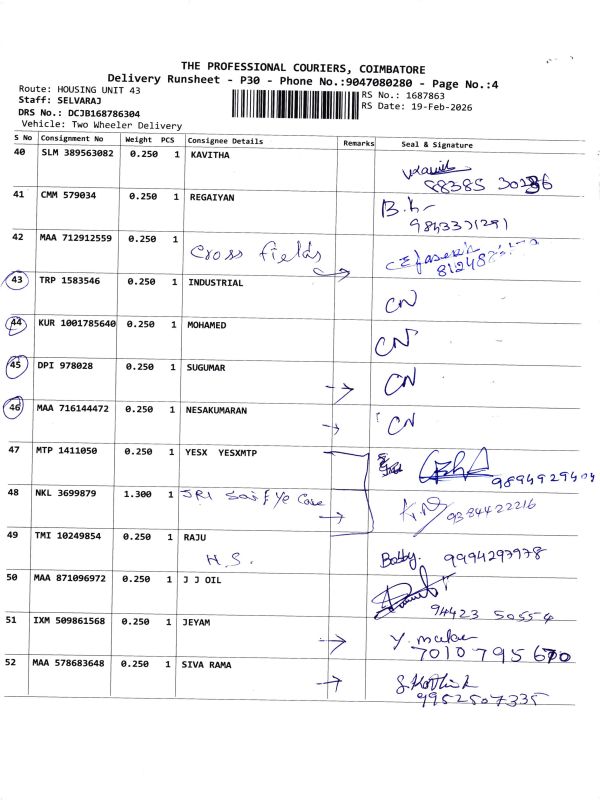 THE PROFESSIONAL COURIERS, COIMBATORE
Delivery Runsheet - P30 - Phone No.:9047080280 - Page No.:4
Route: HOUSING UNIT 43
Staff: SELVARAJ
DRS No.: DCJB168786304
Vehicle: Two Wheeler Delivery
RS No.: 1687863
RS Date: 19-Feb-2026
S No Consignment No Weight PCS Consignee Details Remarks Seal & Signature
40 SLM 389563082 0.250 1 KAVITHA
88385 30236
41 CMM 579034 0.250 1 REGAIYAN
9843331291
42 MAA 712912559 0.250 1 Cross Fields
43 TRP 1583546 0.250 1 INDUSTRIAL CN
44 KUR 1001785640 0.250 1 MOHAMED CN
45 DPI 978028 0.250 1 SUGUMAR CN
46 MAA 716144472 0.250 1 NESAKUMARAN CN
47 MTP 1411050 0.250 1 YESX YESXMTP
9894929404
48 NKL 3699879 1.300 1 SRI
9384422216
49 TMI 10249854 0.250 1 RAJU
H.S. 9994297978
50 MAA 871096972 0.250 1 J J OIL
94423 50554
51 IXM 509861568 0.250 1 JEYAM
7010795670
52 MAA 578683648 0.250 1 SIVA RAMA
9952507335